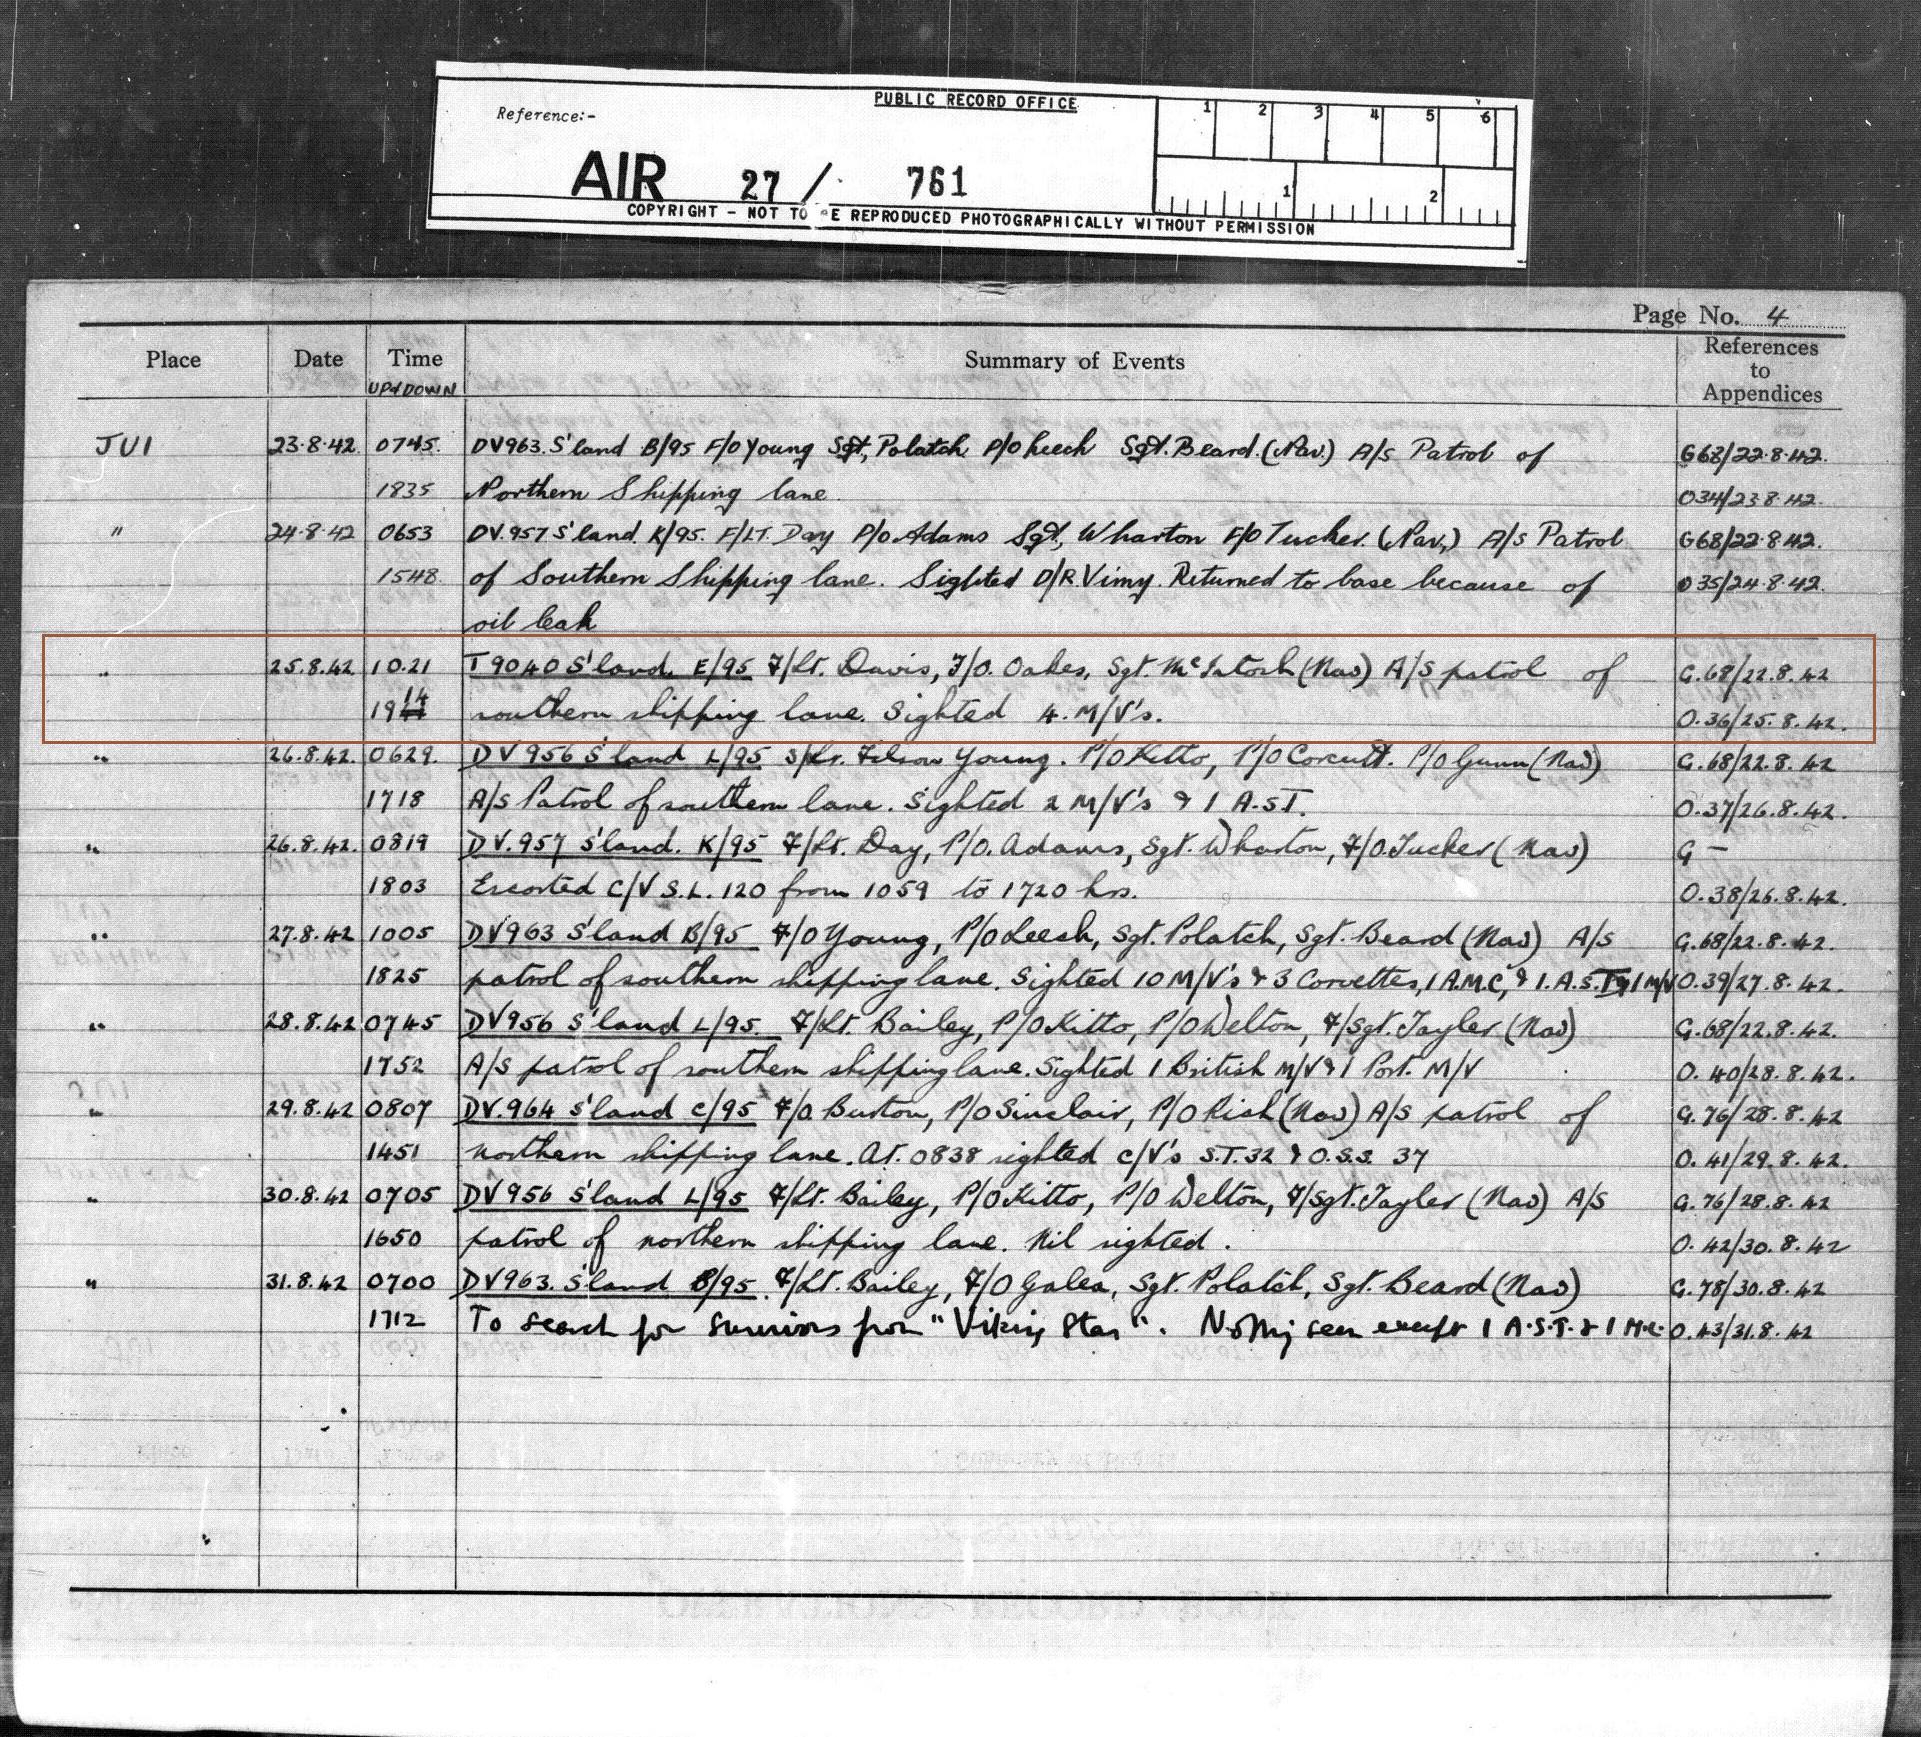 PUBLIC RECORD OFFICE
Reference:-
1 2 3 4 5 6
AIR 27 / 761
1 2
COPYRIGHT - NOT TO BE REPRODUCED PHOTOGRAPHICALLY WITHOUT PERMISSION
Page No. 4
Place Date Time UP & DOWN Summary of Events References to Appendices
JUI 23.8.42 0745. DV963. S'land B/95 F/O Young Sgt, Polatch P/O Leech Sgt. Beard. (Nav.) A/S Patrol of G68/22.8.42.
1835 Northern Shipping lane. O34/23 8.42.
" 24.8.42 0653 DV.957 S'land. K/95. F/LT. Day P/O Adams Sgt, Wharton F/O Tucker. (Nav,) A/S Patrol G68/22.8.42.
1548. of Southern Shipping lane. Sighted D/R Vimy. Returned to base because of O35/24.8.42.
oil leak
" 25.8.42 10.21 T9040 S'land. E/95 F/Lt. Davis, F/O. Oakes, Sgt. McIntosh (Nav) A/S patrol of G.68/22.8.42
1914 southern shipping lane. Sighted 4. M/V's. O.36/25.8.42.
" 26.8.42. 0629. DV956 S'land L/95 S/Lr. Filson Young. P/O Kitto, P/O Corcutt. P/O Gunn (Nav) G.68/22.8.42
1718 A/S Patrol of southern lane. Sighted 2 M/V's & 1 A.S.T. O.37/26.8.42.
" 26.8.42. 0819 DV.957 S'land. K/95 F/Lt. Day, P/O. Adams, Sgt. Wharton, F/O. Tucker (Nav) G —
1803 Escorted C/V S.L. 120 from 1059 to 1720 hrs. O.38/26.8.42.
" 27.8.42 1005 DV963 S'land B/95 F/O Young, P/O Leech, Sgt. Polatch, Sgt. Beard (Nav) A/S G.68/22.8.42.
1825 patrol of southern shipping lane. Sighted 10 M/V's & 3 Corvettes, 1 A.M.C, & 1. A.S.T. & 1 M/V O.39/27.8.42.
" 28.8.42 0745 DV956 S'land L/95. F/Lt. Bailey, P/O Kitto, P/O Welton, F/Sgt. Tayler (Nav) G.68/22.8.42.
1752 A/S patrol of southern shipping lane. Sighted 1 British M/V & 1 Port. M/V O. 40/28.8.42.
" 29.8.42 0807 DV.964 S'land C/95 F/O Burton, P/O Sinclair, P/O Rish (Nav) A/S patrol of G.76/28.8.42
1451 northern shipping lane. At. 0838 sighted C/V's S.T.32 & O.S.S. 37 O. 41/29.8.42.
" 30.8.42 0705 DV956 S'land L/95 F/Lt. Bailey, P/O Kitto, P/O Welton, F/Sgt. Tayler (Nav) A/S G.76/28.8.42
1650 patrol of northern shipping lane. Nil sighted. O. 42/30.8.42
" 31.8.42 0700 DV963. S'land B/95. F/Lt. Bailey, F/O Galea, Sgt. Polatch, Sgt. Beard (Nav) G.78/30.8.42
1712 To search for survivors from "Viking Star". Nothing seen except 1 A.S.T. & 1 O.43/31.8.42